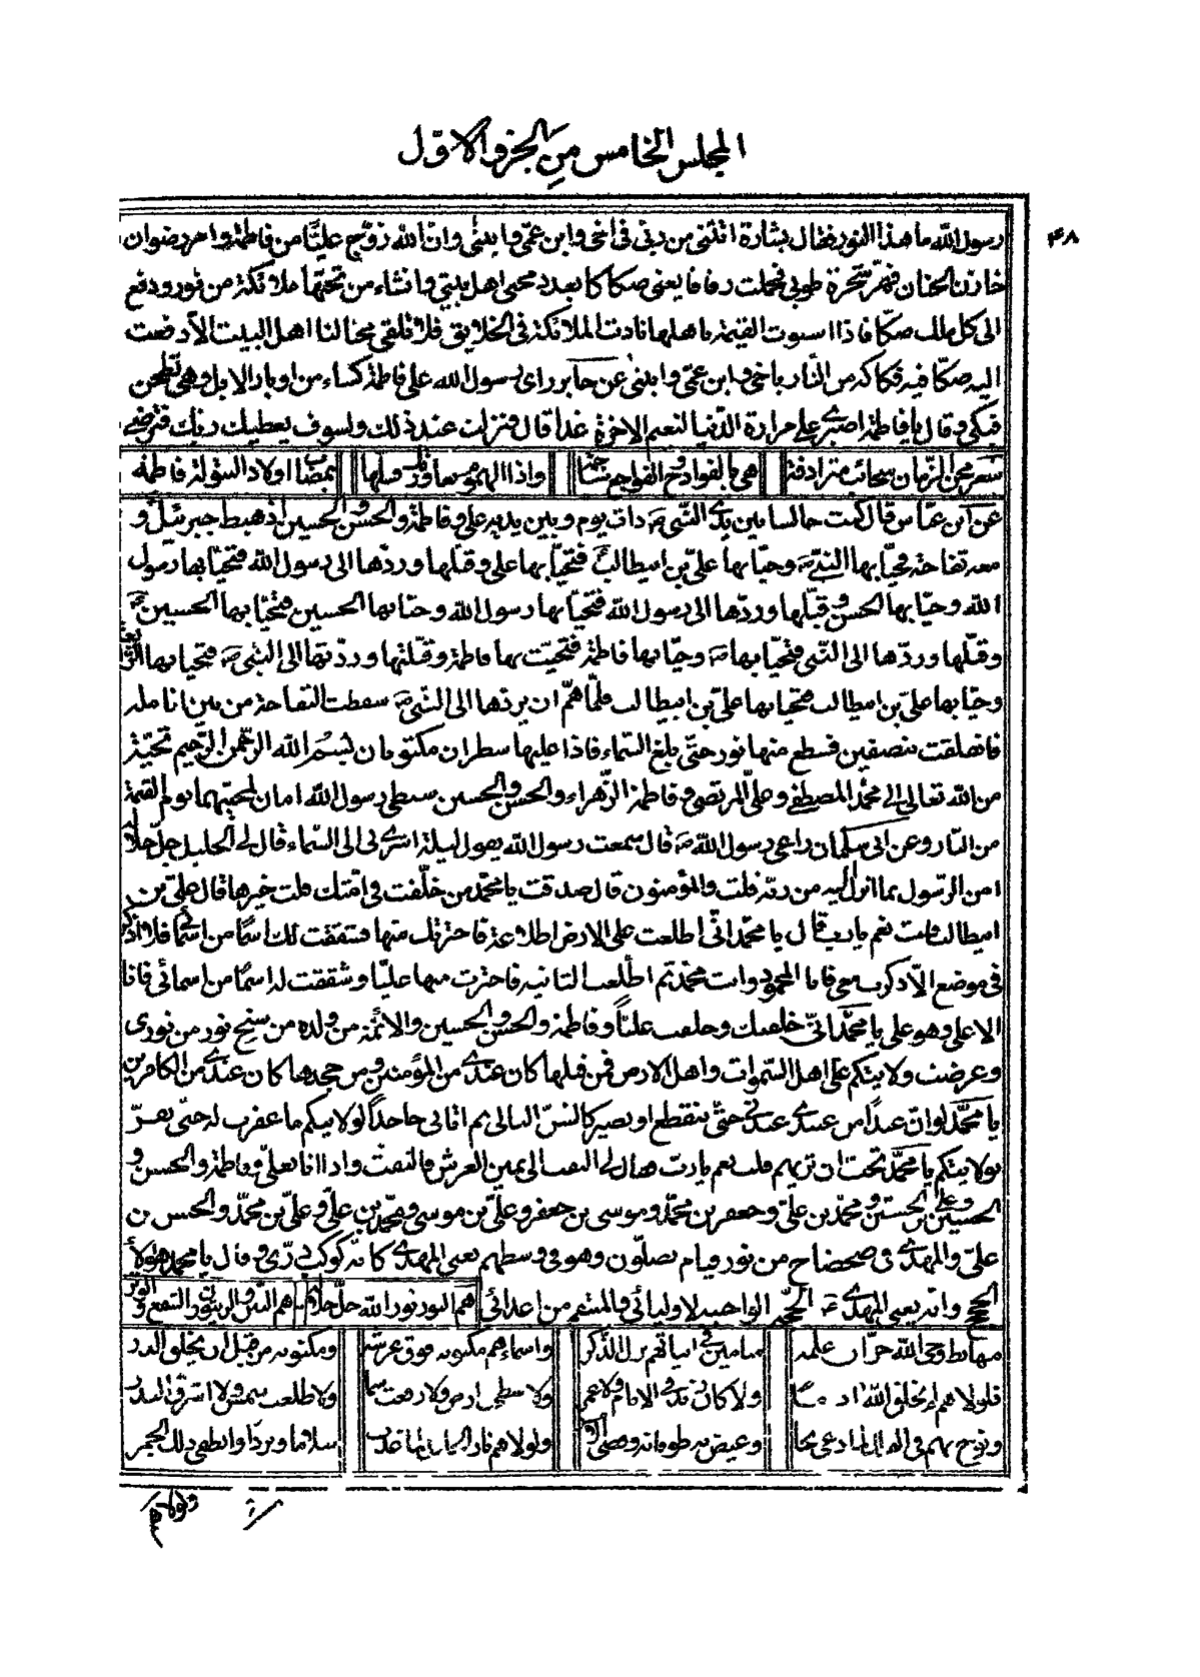 المجلس الخامس من الجزو الاوّل
۴۸
رسول الله ما هذا النور فقال بشارة اتتنى من ربى فى اخى وابن عمّى وابنتى وانّ الله زوّج عليّا من فاطمة وامر رضوان
خازن الجنان فهزّ شجرة طوبى فحملت رقاقا يعنى صكاكا بعدد محبى اهل بيتى وانشاء من تحتها ملائكة من نور ودفع
الى كل ملك صكّا فاذا استوت القيمة باهلها نادت الملائكة فى الخلايق فلا تلقى محبا لنا اهل البيت الّا دفعت
اليه صكّا فيه فكاكه من النّار باخى وابن عمّى وابنتى عن جابر راى رسول الله على فاطمة كساء من اوبار الابل وهى تطحن
فبكى وقال يا فاطمة اصبرى على مرارة الدّنيا لنعيم الاخرة غدا قال فنزلت عند ذلك ولسوف يعطيك ربّك فترضى
شعر محن الزّمان سحائب مترادفة هى بالفوادح والفواجع واذا الهموم فسلها بمصاب اولاد البتولة فاطمه
عن ابن عبّاس قال كنت جالسا بين يدى النّبى ص ذات يوم وبين يديه على وفاطمة والحسن والحسين اذ هبط جبرئيل و
معه تفاحة فحيّا بها النبى ص وحيّا بها علىّ بن ابيطالب فتحيّا بها على وقبّلها وردّها الى رسول الله فتحيّا بها رسول
الله وحيّا بها الحسن وقبّلها وردّها الى رسول الله فتحيّا بها رسول الله وحيّا بها الحسين فتحيّا بها الحسين ع
وقبّلها وردّها الى النّبى فتحيّا بها ص وحيّا بها فاطمة فتحيّت بها فاطمة وقبّلتها وردّتها الى النّبى ص فتحيا بها
وحيّا بها علىّ بن ابيطالب فتحيا بها علىّ بن ابيطالب فلمّا همّ ان يردها الى النّبى ص سقطت التفاحة من بين انامله
فانفلقت بنصفين فسطع منها نور حتّى بلغ السّماء فاذا عليها سطران مكتوبان بسم الله الرّحمن الرّحيم تحيّة
من الله تعالى الى محمّد المصطفى وعلىّ المرتضى وفاطمة الزّهراء والحسن والحسين سبطى رسول الله امان لمحبّيهما يوم القيمة
من النّار وعن ابى سلمان راعى رسول الله ص قال سمعت رسول الله يقول ليلة اسرى بى الى السّماء قال لى الجليل جلّ جلاله
امن الرّسول بما انزل اليه من ربّه قلت والمؤمنون قال صدقت يا محمّد من خلّفت فى امّتك قلت خيرها قال علىّ بن
ابيطالب قلت نعم يا رب قال يا محمّد انّى اطلعت على الارض اطلاعة فاخترتك منها فشققت لك اسمًا من اسمائى فلا اذكر
فى موضع الّا ذكرت معى فانا المحمود وانت محمّد ثم اطّلعت الثانية فاخترت منها عليّا وشققت له اسمًا من اسمائى فانا
الاعلى وهو على يا محمّد انّى خلقتك وخلقت عليّاً وفاطمة والحسن والحسين والائمّة من ولده من سنخ نور من نورى
وعرضت ولايتكم على اهل السّموات واهل الارض فمن قبلها كان عندى من المؤمنين ومن جحدها كان عندى من الكافرين
يا محمّد لو انّ عبدًا من عبيدى عبدنى حتّى ينقطع او يصير كالشنّ البالى ثم اتانى جاحداً لولايتكم ما غفرت له حتّى يقرّ
بولايتكم يا محمّد تحبّ ان تريهم قلت نعم يا ربّ فقال لى التفت الى يمين العرش فالتفت واذا انا بعلىّ وفاطمة والحسن و
الحسين وعلى بن الحسين ومحمّد بن علىّ وجعفر بن محمّد وموسى بن جعفر وعلىّ بن موسى ومحمّد بن علىّ وعلىّ بن محمّد والحسن بن
علىّ والمهدى فى ضحضاح من نور قيام يصلّون وهو فى وسطهم يعنى المهدى كانّه كوكب درّى وقال يا محمّد هؤلاء
الحجج وانّه يعنى المهدى ع الحجّة الواجبة لاوليائى والمنتقم من اعدائى هم النور نور الله جلّ جلاله هم التّين والزيتون والشفع والوتر
مهابط وحى الله خزّان علمه ميامين فى ابياتهم نزل الذّكر واسماءهم مكتوبة فوق عرشه ومكتوبة من قبل ان يخلق الذر
فلولا هم لم يخلق الله ادمًا ولا كان زيد فى الانام ولا عمر ولا سطحت ارض ولا رفعت سما ولا طلعت شمس ولا اشرق البدر
ونوح بهم فى الفلك لما دعى نجا وغيض به طوفانه وقضى الامر ولولا هم نار الخليل لما غدت سلاما وبردًا وانطفى ذلك الجمر
ولولاهم